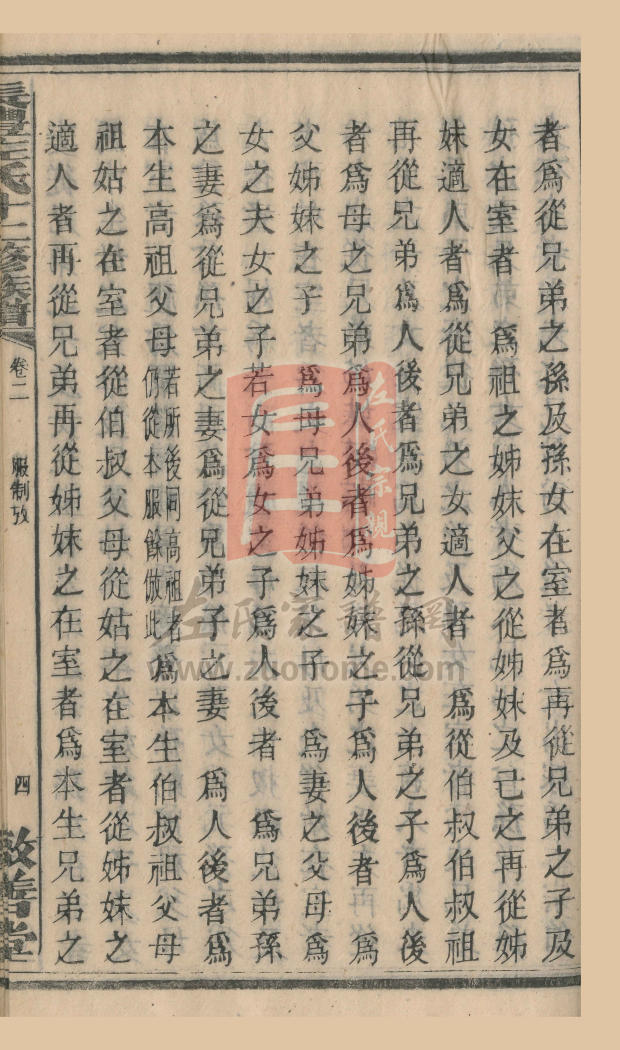 者爲從兄弟之孫及孫女在室者爲再從兄弟之子及
女在室者　爲祖之姊妹父之從姊妹及己之再從姊
妹適人者爲從兄弟之女適人者　爲從伯叔伯叔祖
再從兄弟爲人後者爲兄弟之孫從兄弟之子爲人後
者爲母之兄弟爲人後者爲姊妹之子爲人後者　爲
父姊妹之子　爲母兄弟姊妹之子　爲妻之父母爲
女之夫女之子若女爲女之子爲人後者　爲兄弟孫
之妻爲從兄弟之妻爲從兄弟子之妻　爲人後者爲
本生高祖父母若所後同高祖者仍從本服餘倣此爲本生伯叔祖父母
祖姑之在室者從伯叔父母從姑之在室者從姊妹之
適人者再從兄弟再從姊妹之在室者爲本生兄弟之
左氏十二修族譜
卷二
服制攷
四
敦善堂
左氏宗親
左氏宗譜網
www.zuohome.com